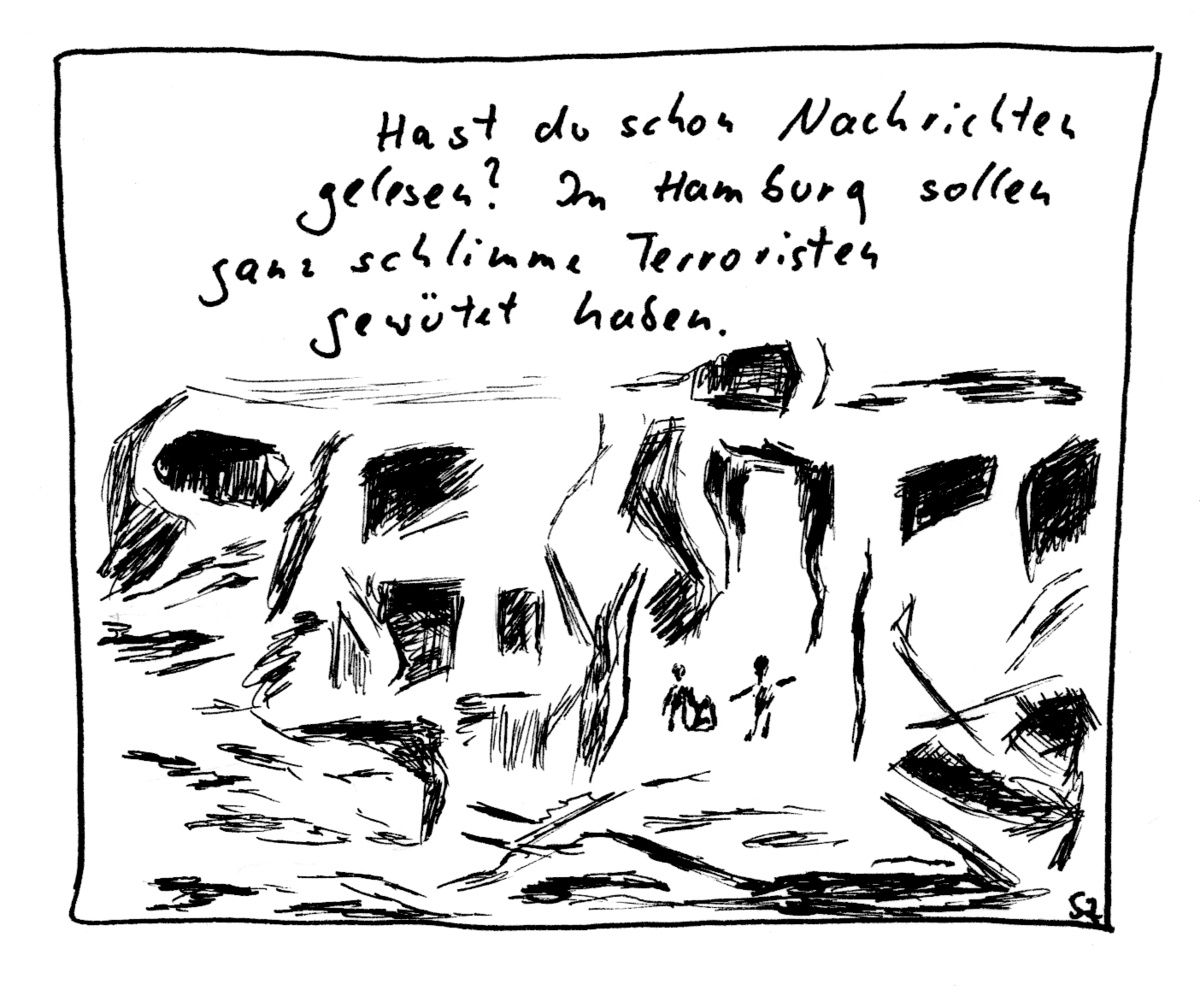 Hast du schon Nachrichten
gelesen? In Hamburg sollen
ganz schlimme Terroristen
gewütet haben.
SZ